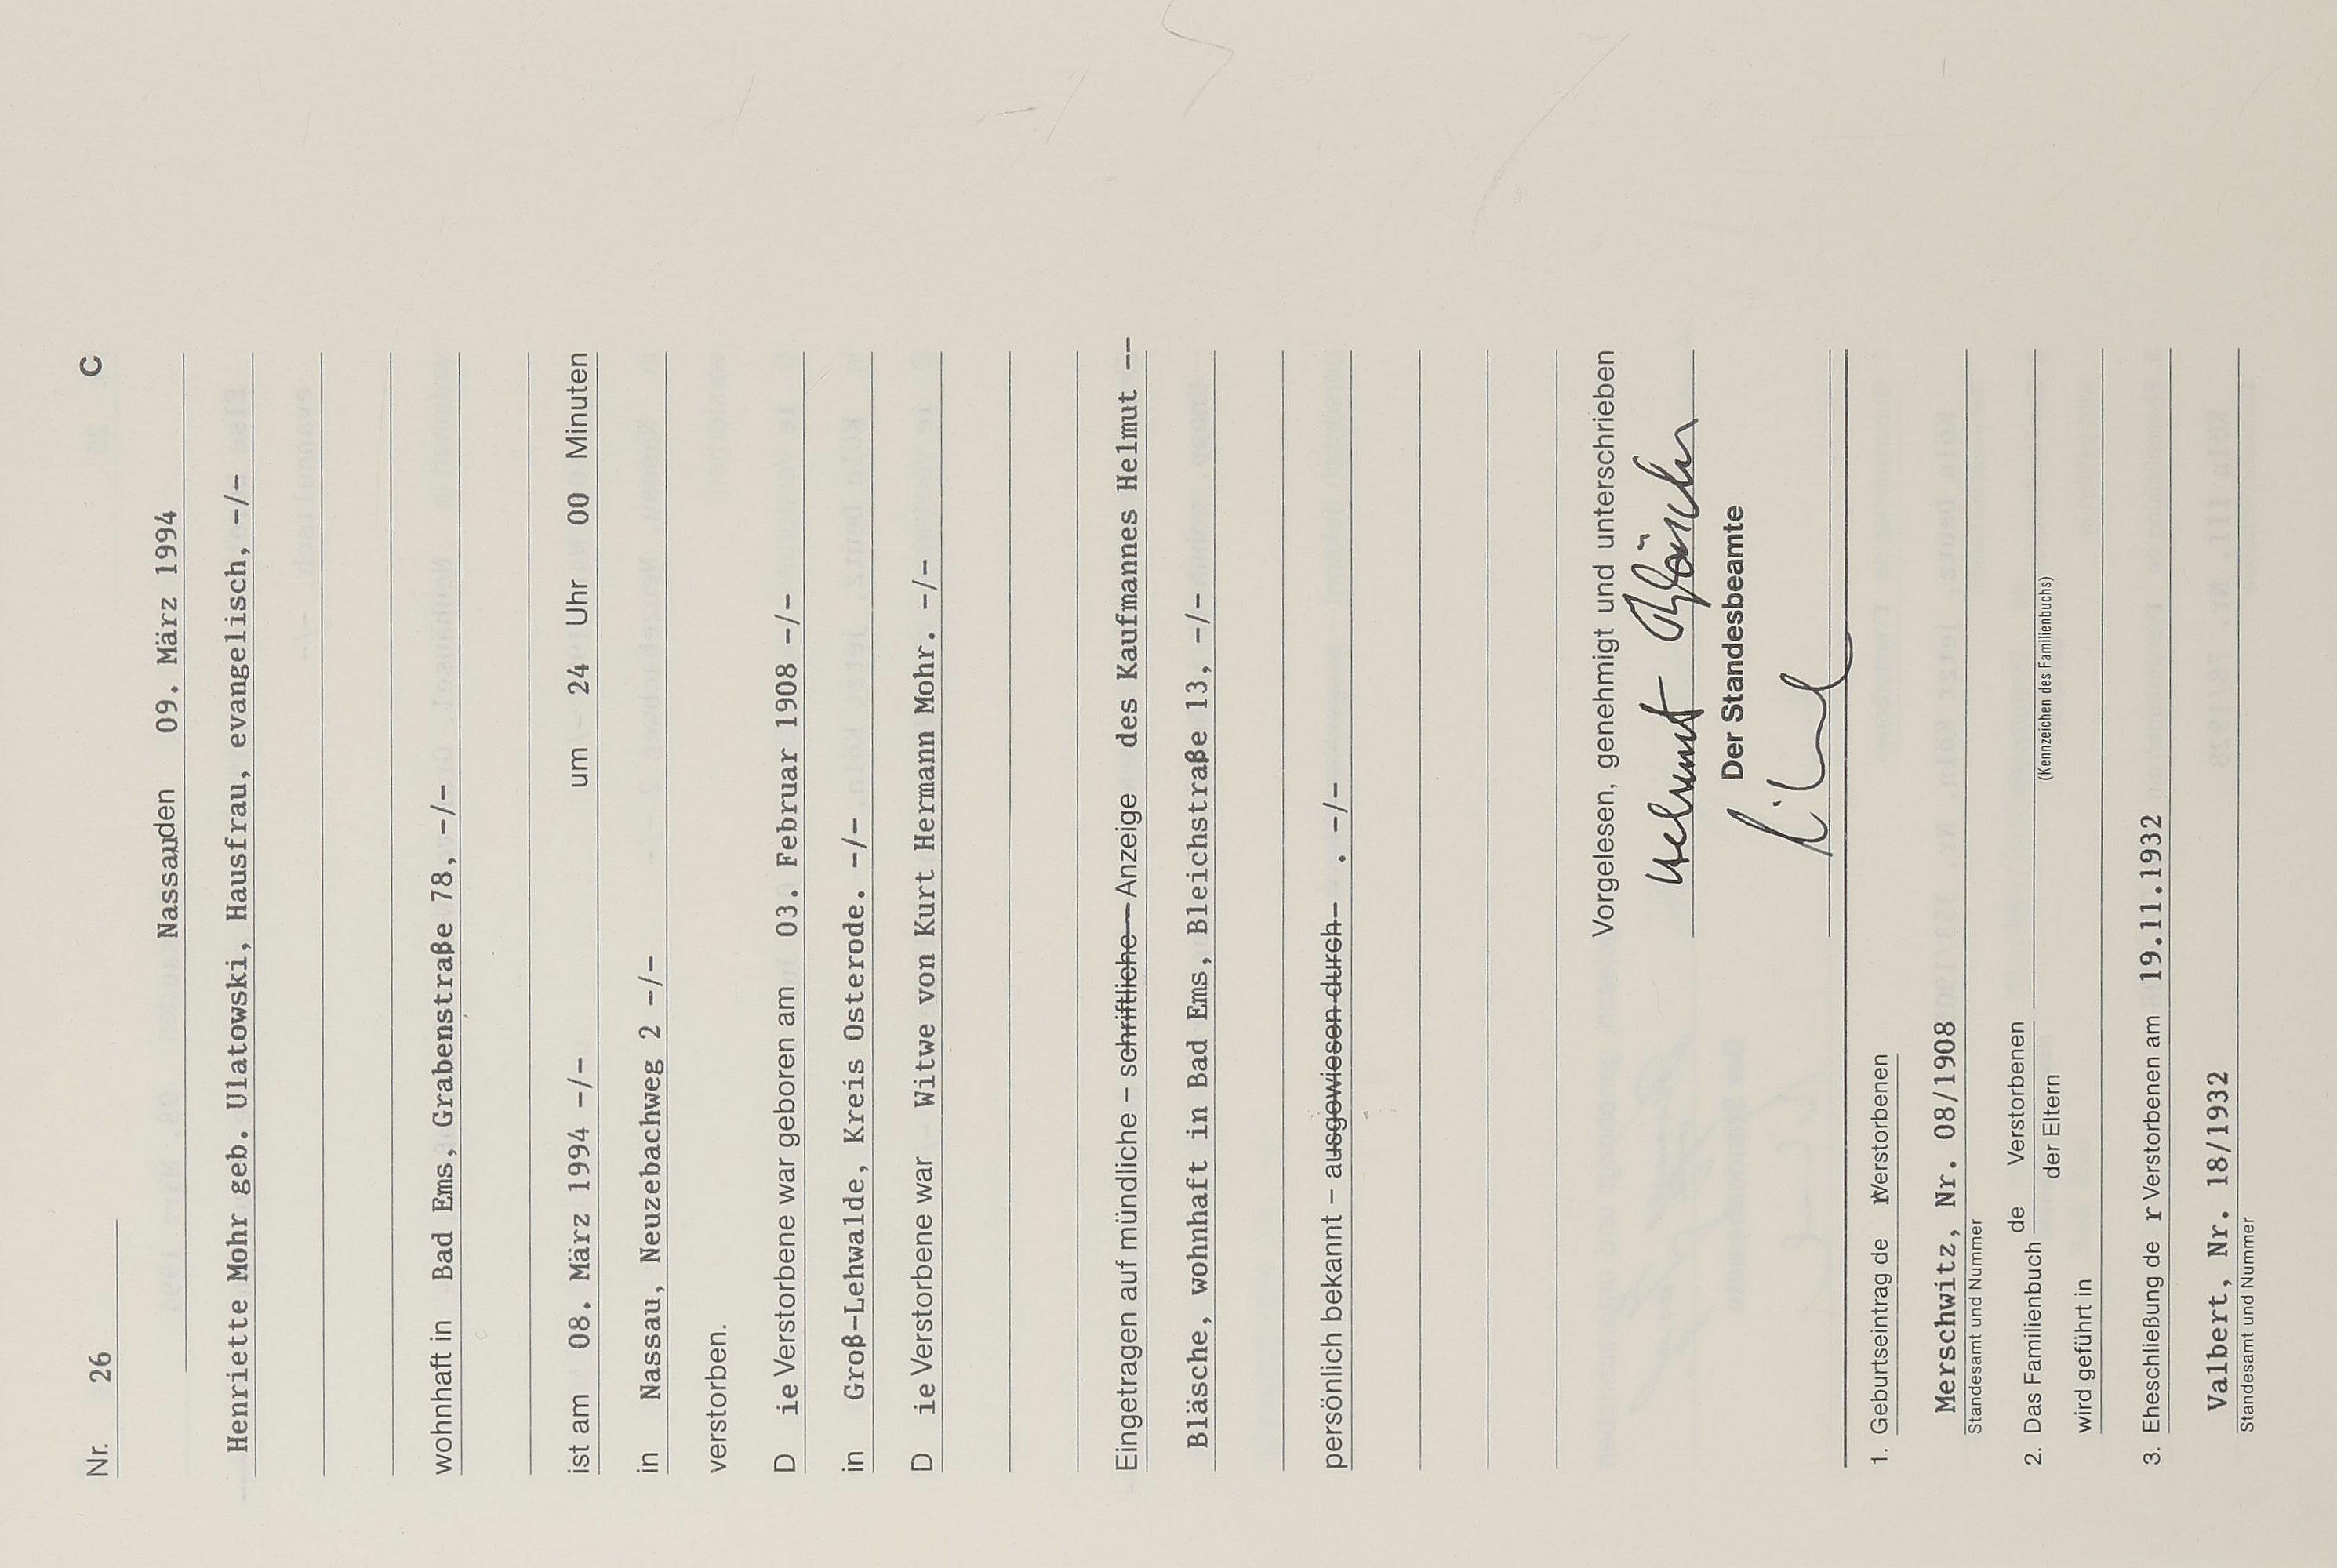 Nr. 26 C
Nassau den 09. März 1994
Henriette Mohr geb. Ulatowski, Hausfrau, evangelisch, -/-
wohnhaft in Bad Ems, Grabenstraße 78, -/-
ist am 08. März 1994 -/- um 24 Uhr 00 Minuten
in Nassau, Neuzebachweg 2 -/-
verstorben.
D ie Verstorbene war geboren am 03. Februar 1908 -/-
in Groß-Lehwalde, Kreis Osterode. -/-
D ie Verstorbene war Witwe von Kurt Hermann Mohr. -/-
Eingetragen auf mündliche – schriftliche – Anzeige des Kaufmannes Helmut --
Bläsche, wohnhaft in Bad Ems, Bleichstraße 13, -/-
persönlich bekannt – ausgewiesen durch . -/-
Vorgelesen, genehmigt und unterschrieben
Helmut Bläsche
Der Standesbeamte
1. Geburtseintrag de r Verstorbenen
Merschwitz, Nr. 08/1908
Standesamt und Nummer
2. Das Familienbuch de Verstorbenen
der Eltern (Kennzeichen des Familienbuchs)
wird geführt in
3. Eheschließung de r Verstorbenen am 19.11.1932
Valbert, Nr. 18/1932
Standesamt und Nummer